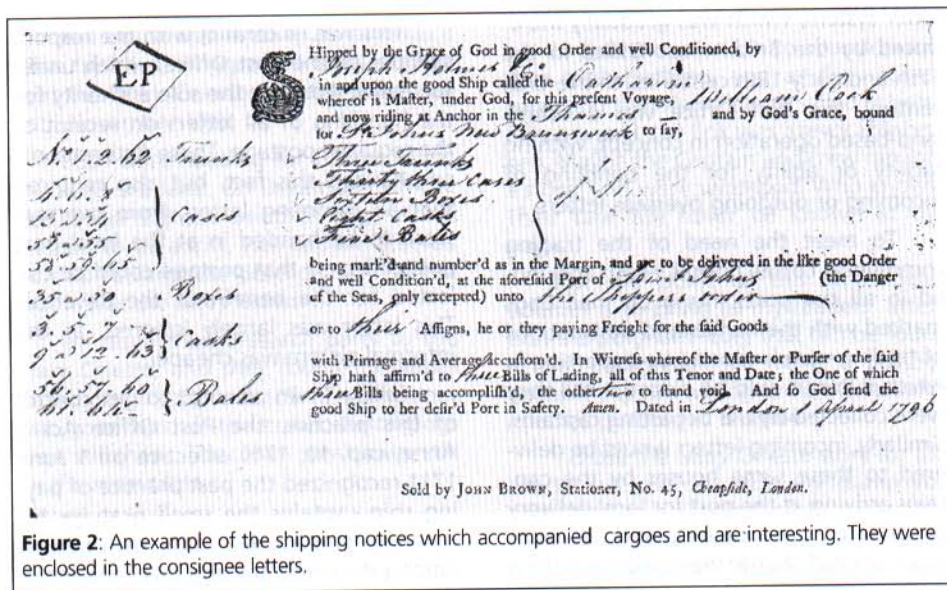 EP
SHipped by the Grace of God in good Order and well Conditioned, by
Joseph Holmes &Co
in and upon the good Ship called the Catharine
whereof is Master, under God, for this present Voyage, William Cook
and now riding at Anchor in the Thames and by God's Grace, bound
for St. Johns New Brunswick to say,
No. 1 2 62 Trunks Three Trunks
Thirty three Cases
Cases Boxes
Eight Casks
Five Bales
being mark'd and number'd as in the Margin, and are to be delivered in the like good Order
and well Condition'd, at the aforesaid Port of St. Johns (the Danger
of the Seas, only excepted) unto the Shippers order
Boxes
or to their Assigns, he or they paying Freight for the said Goods
3 5 7 Casks
9 12 63
with Primage and Average accustom'd. In Witness whereof the Master or Purser of the said
Ship hath affirm'd to three Bills of Lading, all of this Tenor and Date; the One of which
56. 57. 60 Bales
three Bills being accomplish'd, the other two to stand void. And so God send the
good Ship to her desir'd Port in Safety. Amen. Dated in London 1 April 1796
Sold by JOHN BROWN, Stationer, No. 45, Cheapside, London.
Figure 2: An example of the shipping notices which accompanied cargoes and are interesting. They were
enclosed in the consignee letters.